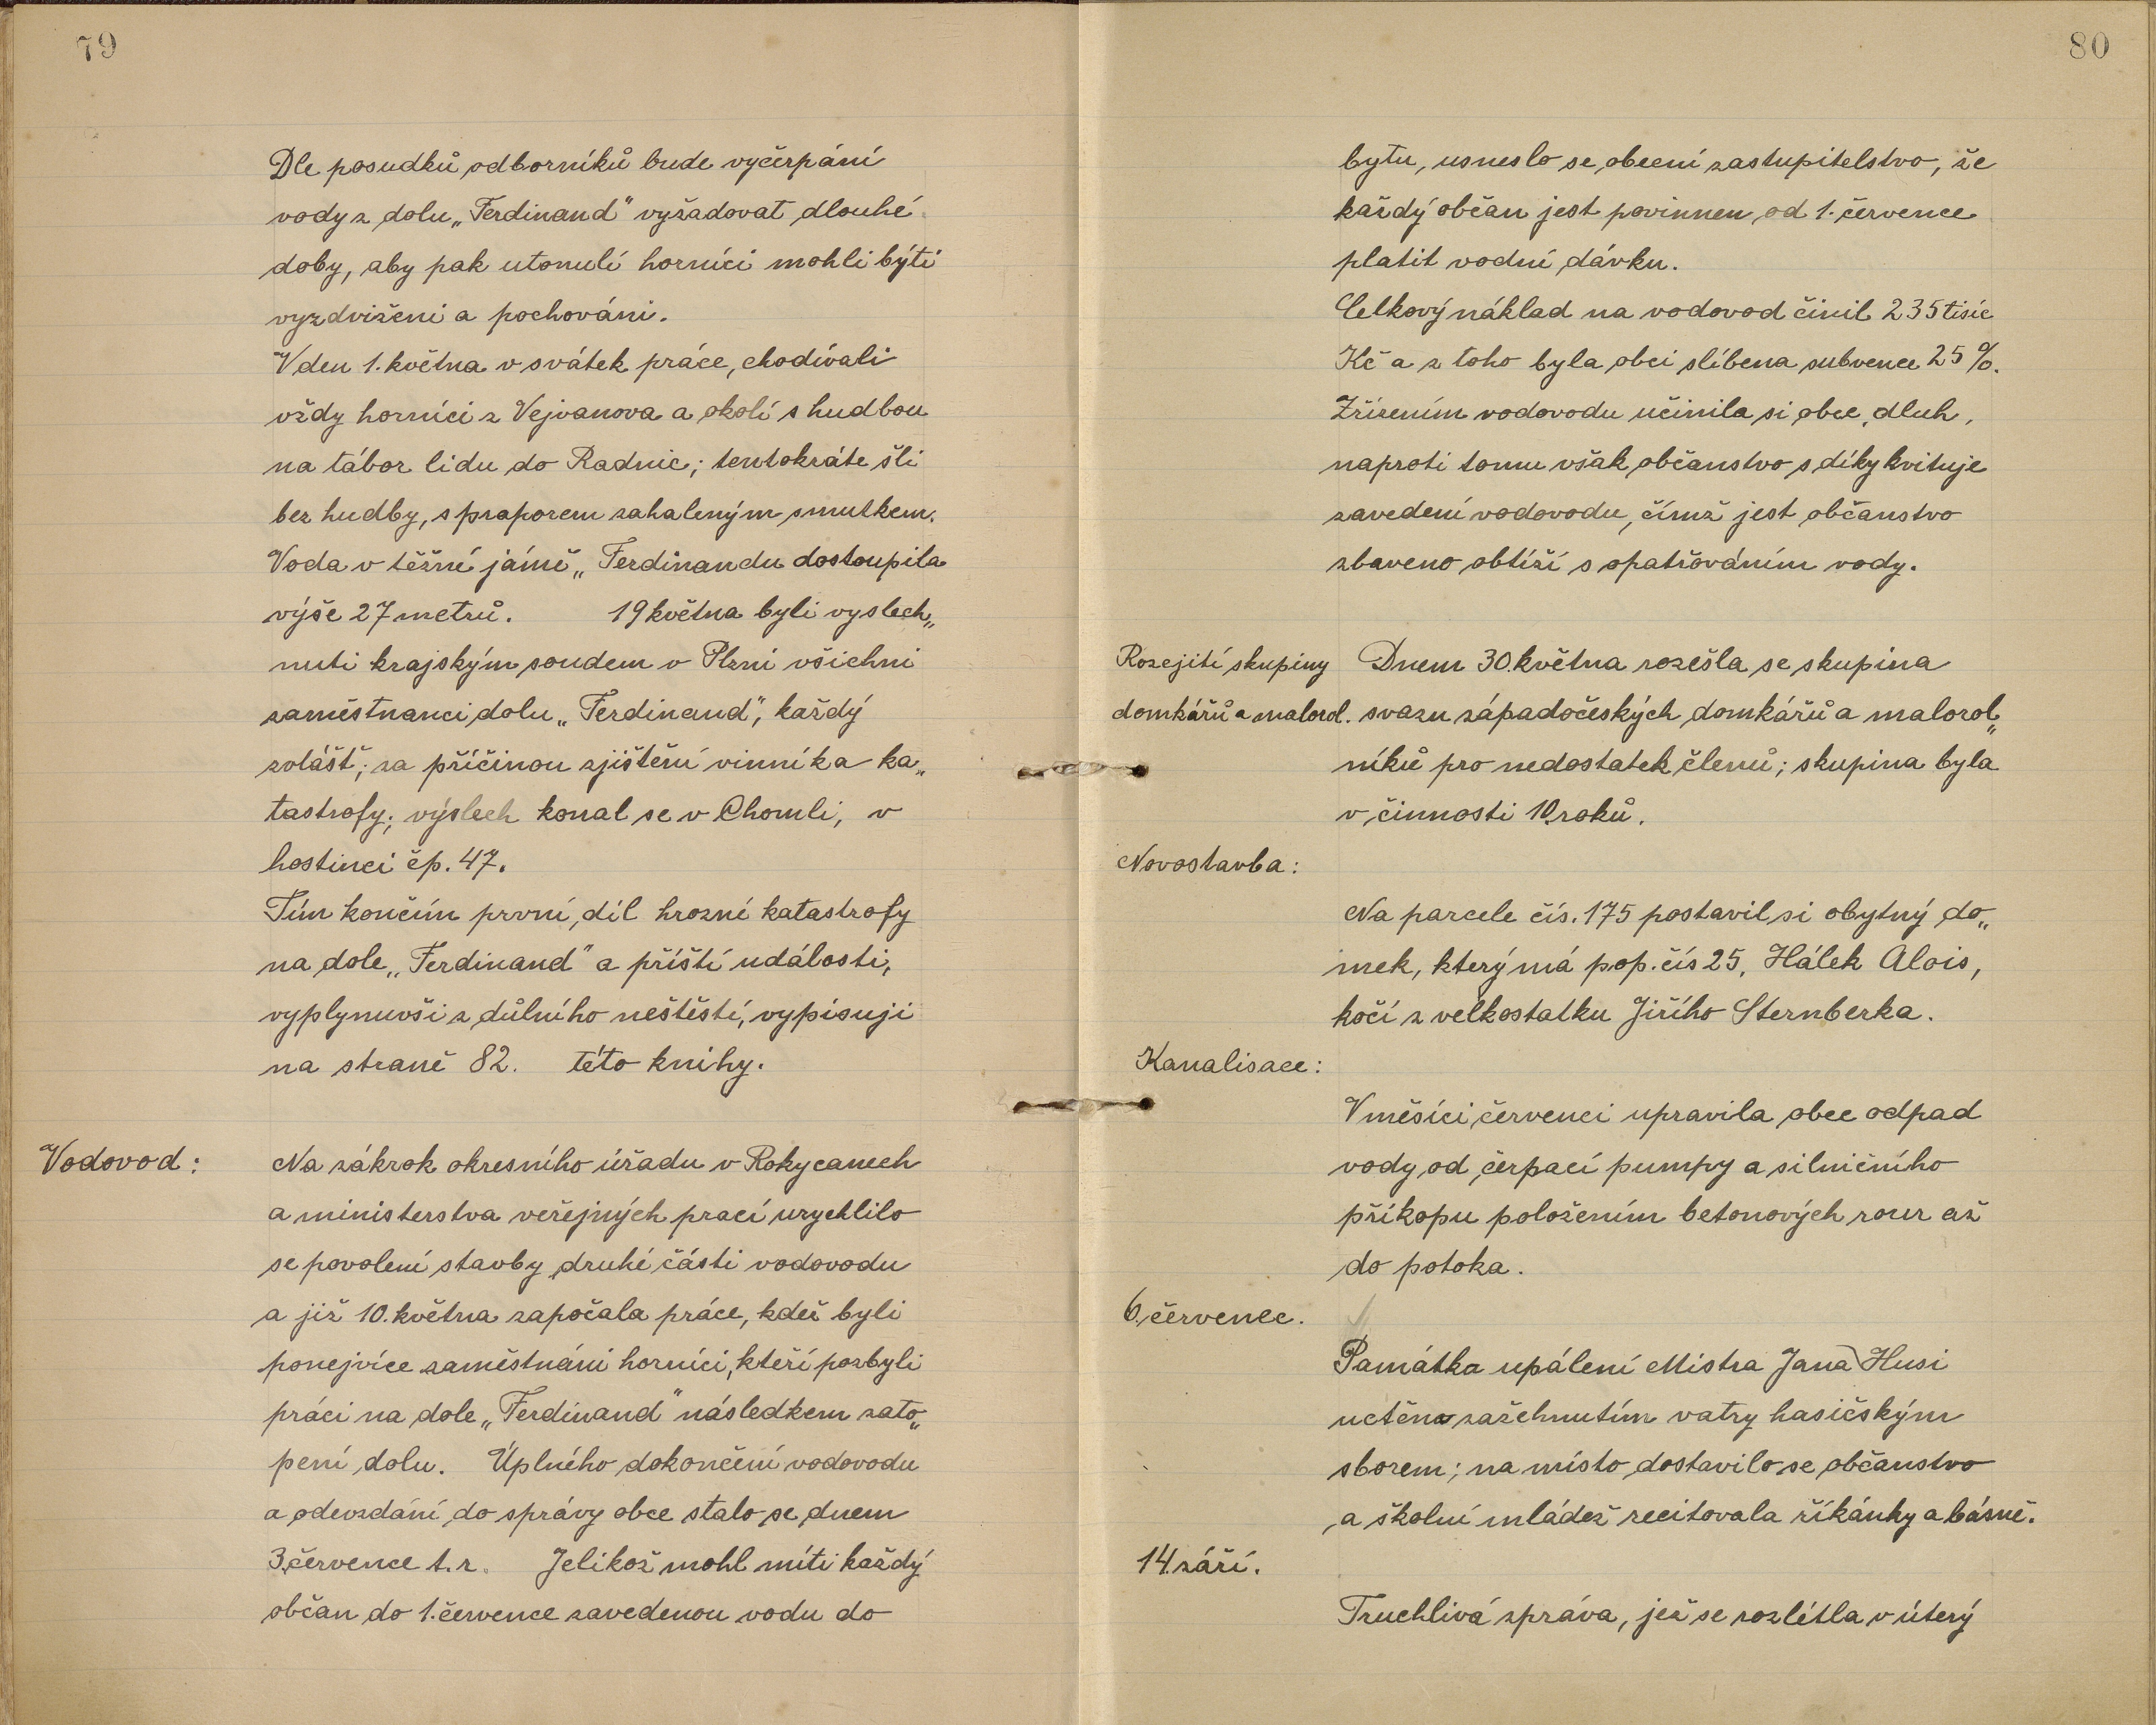 79
Dle posudků odborníků bude vyčerpání
vody z dolu „Ferdinand" vyžadovat dlouhé
doby, aby pak utonulí horníci mohli býti
vyzdviženi a pochováni.
V den 1. května v svátek práce, chodívali
vždy horníci z Vejvanova a okolí s hudbou
na tábor lidu do Radnic; tentokráte šli
bez hudby, s praporem zahaleným smutkem.
Voda v těžné jámě „Ferdinandu dostoupila
výše 27 metrů. 19 května byli vyslech„
nuti krajským soudem v Plzni všichni
zaměstnanci dolu „Ferdinand", každý
zvlášť; za příčinou zjištění vinníka ka„
tastrofy; výslech konal se v Chomli, v
hostinci čp. 47.
Tím končím první díl hrozné katastrofy
na dole „Ferdinand" a příští události,
vyplynuvši z důlního neštěstí, vypisuji
na straně 82. této knihy.
Vodovod: Na zákrok okresního úřadu v Rokycanech
a ministerstva veřejných prací urychlilo
se povolení stavby druhé části vodovodu
a již 10. května započala práce, kdež byli
ponejvíce zaměstnáni horníci, kteří pozbyli
práci na dole „Ferdinand" následkem zato„
pení dolu. Úplného dokončení vodovodu
a odevzdání do správy obce stalo se dnem
3. července t. r. Jelikož mohl míti každý
občan do 1. července zavedenou vodu do
80
bytu, usneslo se obecní zastupitelstvo, že
každý občan jest povinnen od 1. července
platit vodní dávku.
Celkový náklad na vodovod činil 235 tisíc
Kč a z toho byla obci slíbena subvence 25 %.
Zřízením vodovodu učinila si obec dluh,
naproti tomu však občanstvo s díky kvituje
zavedení vodovodu, čímž jest občanstvo
zbaveno obtíží s opatřováním vody.
Rozejití skupiny Dnem 30. května rozešla se skupina
domkářů a malorol. svazu západočeských domkářů a malorol„
níků pro nedostatek členů; skupina byla
v činnosti 10 roků.
Novostavba:
Na parcele čís. 175 postavil si obytný do„
mek, který má pop. čís 25, Hálek Alois,
kočí z velkostatku Jiřího Sternberka.
Kanalisace:
V měsíci červenci upravila obec odpad
vody od čerpací pumpy a silničního
příkopu položením betonových rour až
do potoka.
6. červenec.
Památka upálení Mistra Jana Husi
uctěna zažehnutím vatry hasičským
sborem; na místo dostavilo se občanstvo
a školní mládež recitovala říkánky a básně.
14. září.
Truchlivá zpráva, jež se rozlétla v úterý